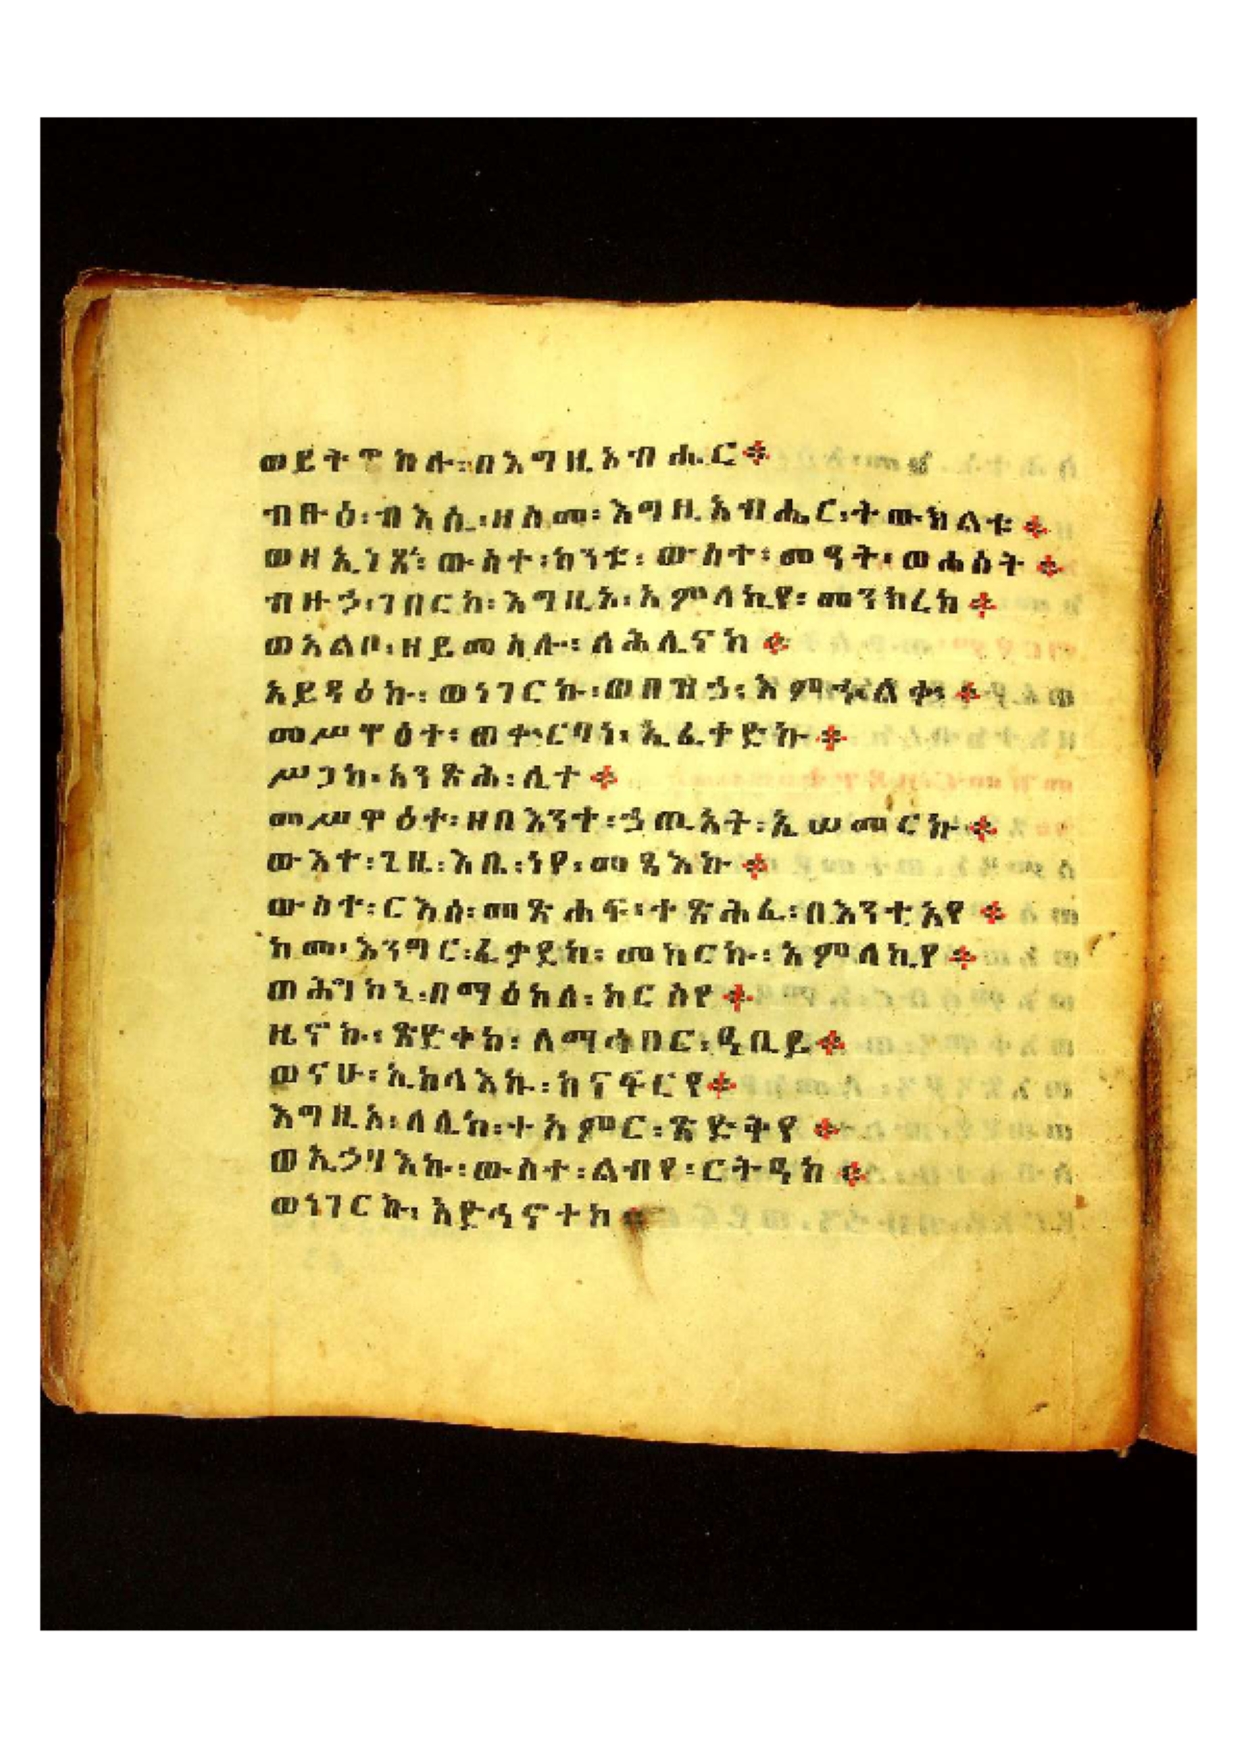 ወይትዌከሉ፡በእግዚአብሔር፨
ብፁዕ፡ብእሲ፡ዘስመ፡እግዚአብሔር፡ትውክልቱ፨
ወዘኢነጸረ፡ውስተ፡ከንቱ፡ውስተ፡መዓት፡ወሐሰት፨
ብዙኃ፡ገበርከ፡እግዚኦ፡አምላኪየ፡መንክረከ፨
ወአልቦ፡ዘይመስሎ፡ለሕሊናከ፨
አይዳዕኩ፡ወነገርኩ፡ወበዝኃ፡እምኁልቍ፨
መሥዋዕተ፡ወቍርባነ፡ኢፈተድኩ፨
ሥጋከ፡አንጽሕ፡ሊተ፨
መሥዋዕተ፡ዘበእንተ፡ኃጢአት፡ኢሠመርኩ፨
ውእተ፡ጊዜ፡እቤ፡ነየ፡መጻእኩ፨
ውስተ፡ርእሰ፡መጽሐፍ፡ተጽሕፈ፡በእንቲአየ፨
ከመ፡እንግር፡ፈቃደከ፡መከርኩ፡አምላኪየ፨
ወሕግከኒ፡በማዕከለ፡ከርሥየ፨
ዜኖኩ፡ጽድቀከ፡ለማኅበር፡ዓቢይ፨
ወናሁ፡ኢከላእኩ፡ከናፍርየ፨
እግዚኦ፡ለሊከ፡ተአምር፡ጽድቅየ፨
ወኢኃባእኩ፡ውስተ፡ልብየ፡ርትዓከ፨
ወነገርኩ፡አድኅኖተከ፨